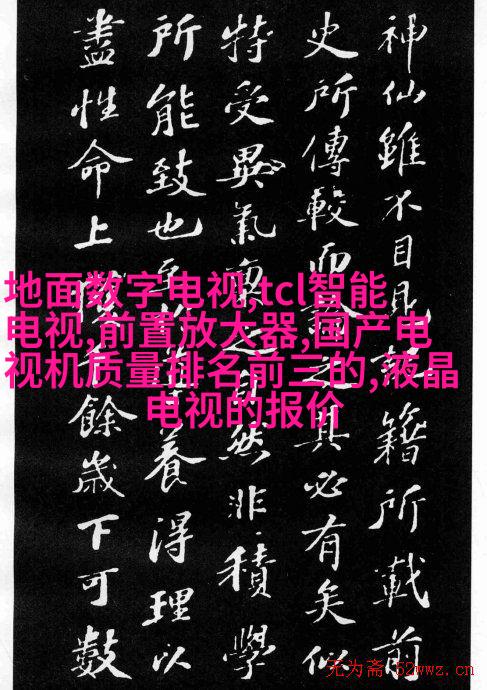 神仙雖不目見籍所載前
史所傳較而之其必有矣似
特受異氣稟之自然非積學
所能致也至養得理以
盡性命上餘歲下可數
地面数字电视,tcl智能
电视,前置放大器,国产电
视机质量排名前三的,液晶
电视的报价
无为斋 52wwz.cn